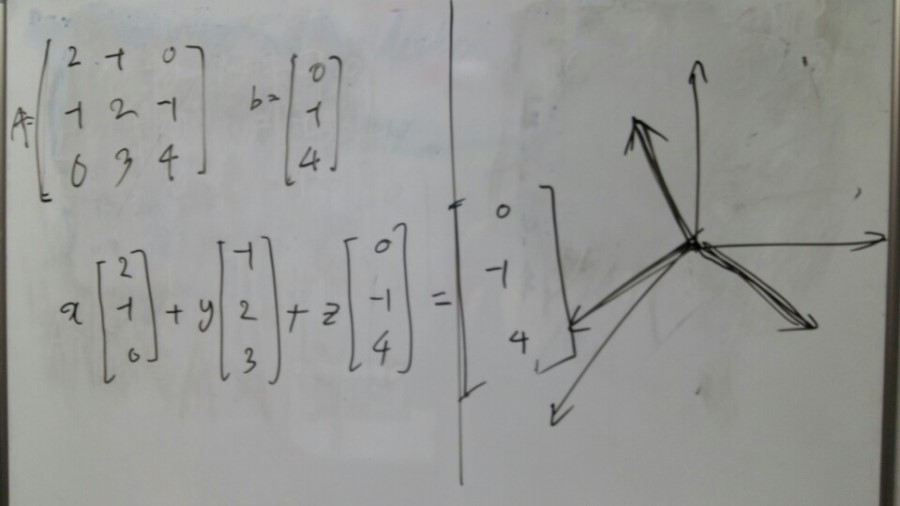 A = [2 -1 0; -1 2 -1; 0 3 4] b = [0; -1; 4]
x [2; -1; 0] + y [-1; 2; 3] + z [0; -1; 4] = [0; -1; 4]